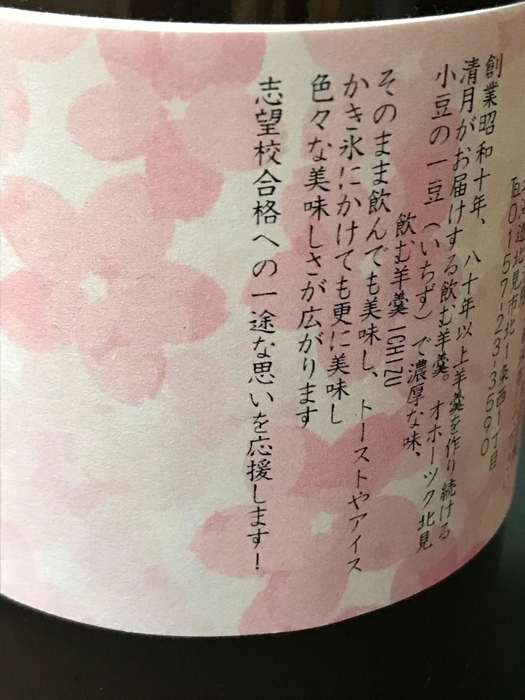 創業昭和十年、八十年以上羊羹を作り続ける
清月がお届けする飲む羊羹。オホーツク北見
小豆の一豆（いちず）で濃厚な味、
飲む羊羹 ICHIZU
そのまま飲んでも美味し、トーストやアイス
かき氷にかけても更に美味し
色々な美味しさが広がります
志望校合格への一途な思いを応援します！
北見市北1条西1丁目
℡0157-23-3590